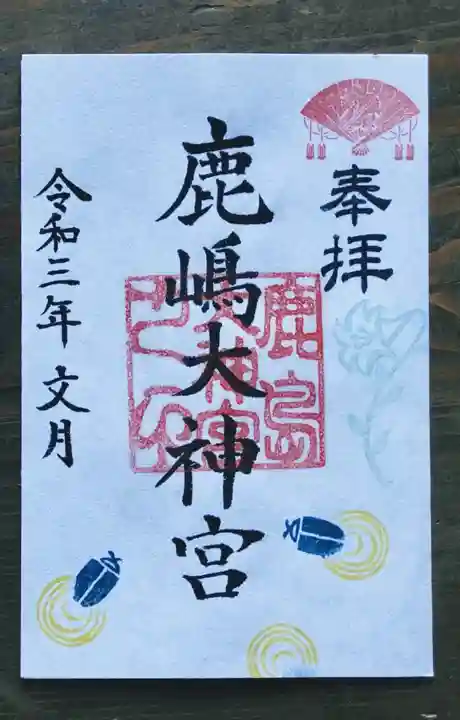 奉拝
鹿嶋大神宮
鹿島
大神宮
令和三年 文月